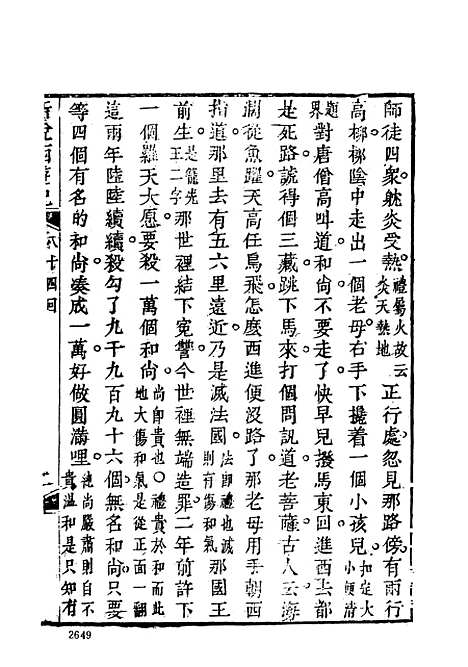 師徒四衆躭炎受熱禮屬火故云炎天熱地正行處忽見那路傍有兩行
高柳柳陰中走出一個老母右手下攙着一個小孩兒扣定大小便清
題界對唐僧高叫道和尚不要走了快早兒撥馬東回進西去都
是死路諕得個三藏跳下馬來打個問訊道老菩薩古人云海
濶從魚躍天高任鳥飛怎麽西進便沒路了那老母用手朝西
指道那里去有五六里遠近乃是滅法國法卽禮也滅則有傷和氣那國王
前生是籠光王二字那世裡結下寃讐今世裡無端造罪二年前許下
一個羅天大愿要殺一萬個和尚尚卽貴也〇禮貴於和而此地大傷和氣是從正面一翻
這兩年陸陸續續殺勾了九千九百九十六個無名和尚只要
等四個有名的和尚凑成一萬好做圓滿哩徒尚嚴肅則自不貴溫和是只知有
新說西遊記
八十四回
二
2649